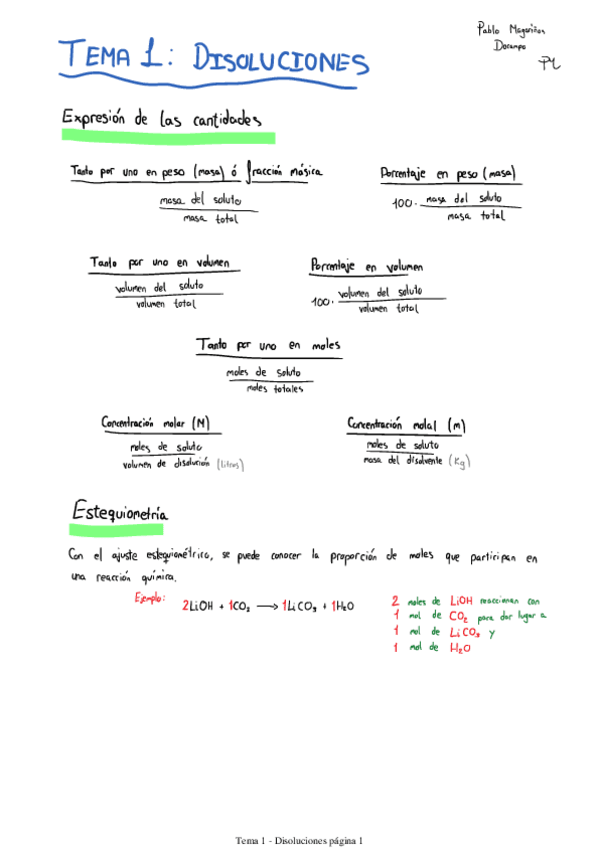 Pablo Magariños
Docampo
TEMA 1: DISOLUCIONES
Expresión de las cantidades
Tanto por uno en peso (masa) ó fracción másica
masa del soluto
masa total
Porcentaje en peso (masa)
100. masa del soluto
masa total
Tanto por uno en volumen
volumen del soluto
volumen total
Porcentaje en volumen
100. volumen del soluto
volumen total
Tanto por uno en moles
moles de soluto
moles totales
Concentración molar (M)
moles de soluto
volumen de disolución (litros)
Concentración molal (m)
moles de soluto
masa del disolvente (Kg)
Estequiometría
Con el ajuste estequiométrico, se puede conocer la proporción de moles que participan en
una reacción química.
Ejemplo:
2LiOH + 1CO₂ → 1LiCO₃ + 1H₂O
2 moles de LiOH reaccionan con
1 mol de CO₂ para dar lugar a
1 mol de LiCO₃ y
1 mol de H₂O
Tema 1 - Disoluciones página 1